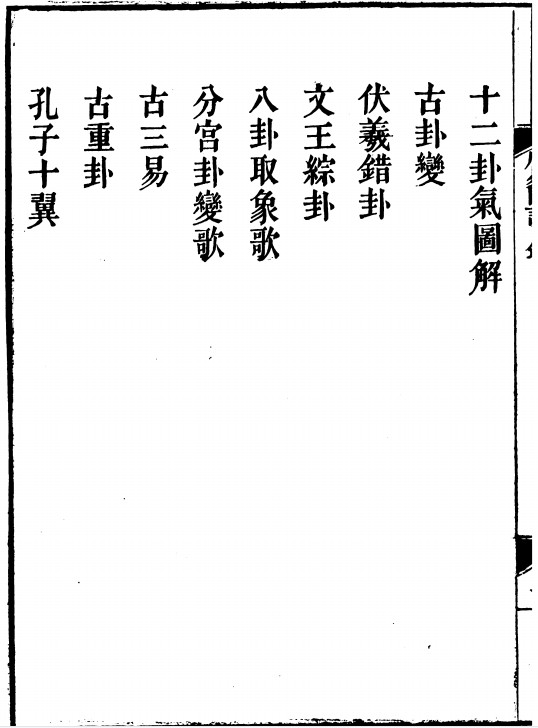 十二卦氣圖解
古卦變
伏羲錯卦
文王綜卦
八卦取象歌
分宫卦變歌
古三易
古重卦
孔子十翼